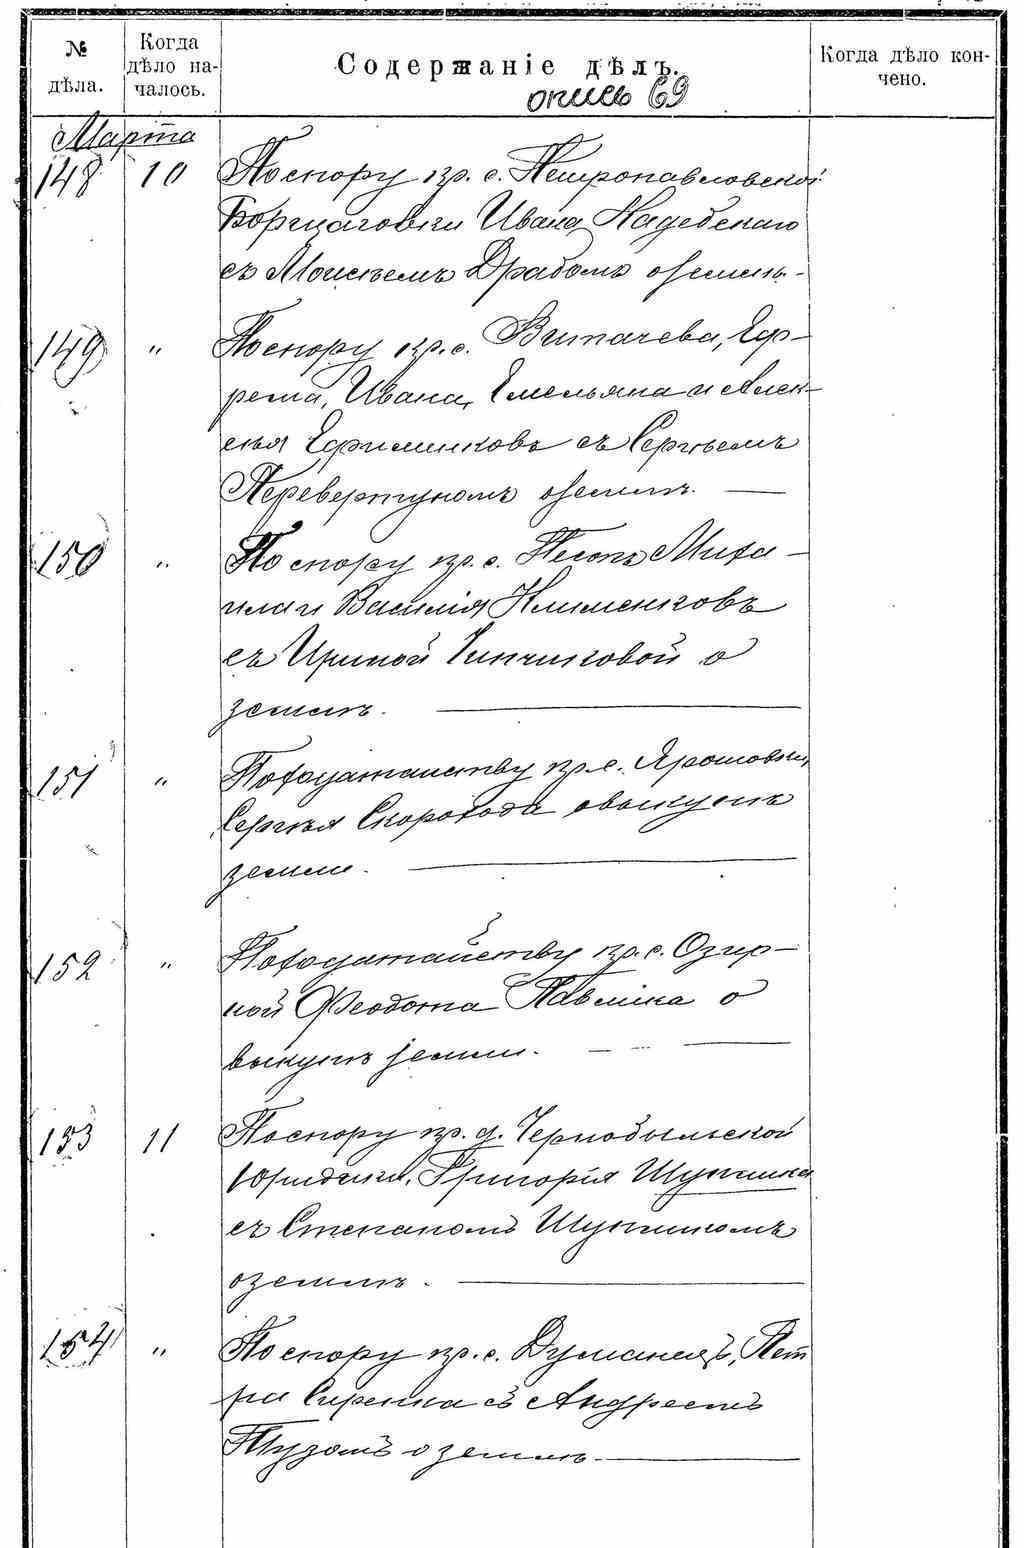 № дѣла.
Когда дѣло началось.
Содержаніе дѣлъ.
Когда дѣло кончено.
опись 69
Марта
148 10 По спору кр. с. Петропавловской
Борщаговки Ивана Надебскаго
съ Моисѣемъ Драбомъ о землѣ.
149 " По спору кр. с. Витачева, Еф-
рема, Ивана, Емельяна и Алек-
сѣя Ефименковъ съ Сергѣемъ
Перевертуномъ о землѣ. —
150 " По спору кр. с. Пегонъ Миха-
ила и Василія Клименковъ
съ Ириной Чипчиковой о
землѣ. —
151 " По ходатайству кр. с. Ярошовки,
Сергѣя Скорохода о выкупѣ
земли. —
152 " По ходатайству кр. с. Озир-
ной Феодота Павліка о
выкупѣ земли. — —
153 11 По спору кр. д. Чернобыльской
Юридики, Григорія Шупика
съ Степаномъ Шупикомъ
о землѣ. —
154 " По спору кр. с. Думанецъ, Пет
ра Сиренка съ Андреемъ
Тузомъ о землѣ. —